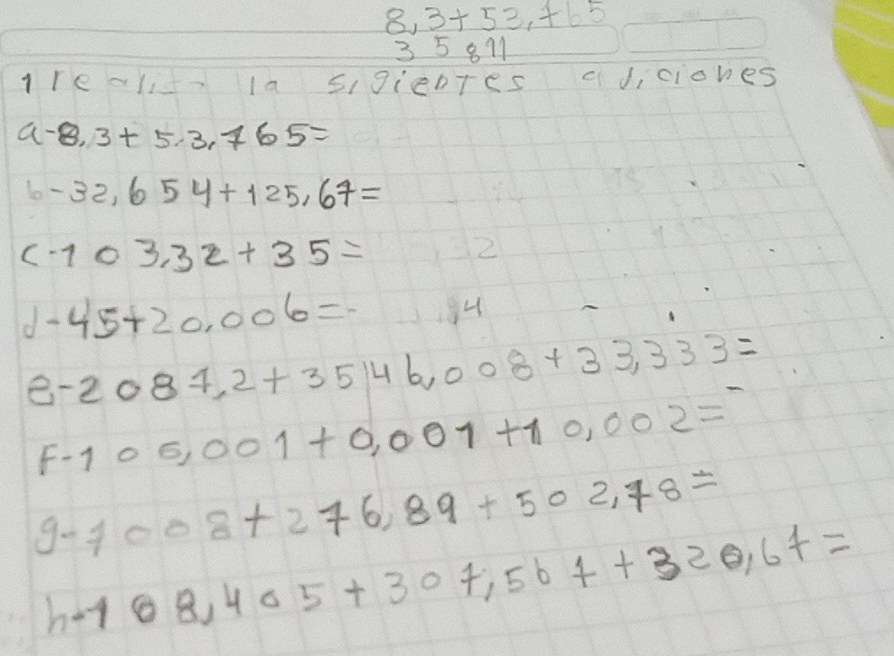 8,3+53,765
3 5 811
1 realiza la sigientes adiciones
a-8,3+53,765=
b-32,654+125,67=
c-103,32+35=
d-45+20,006=
e-2087,2+3546,008+33,333=
F-106,001+0,001+10,002=
g-7008+276,89+502,78=
h-108,405+307,567+320,67=